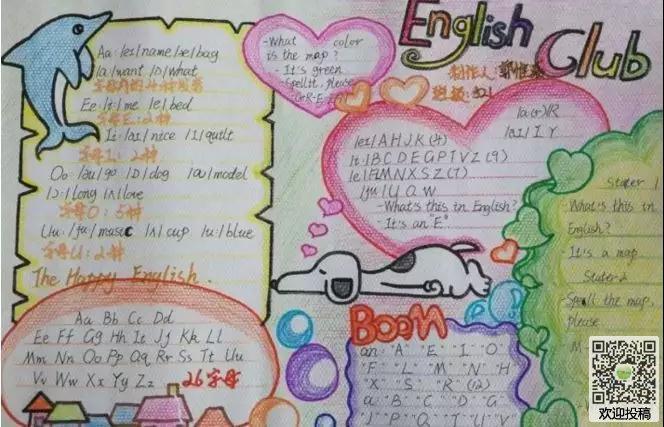 English Club
制作人:
班级:
Aa /eɪ/name /æ/bag
/a/want /ɔ/what
Ee /i:/me /e/bed
字母E:2种
Ii /aɪ/nice /ɪ/quilt
字母I:2种
Oo /əu/go /ɔ/dog /əu/model
/ɔ:/long /ʌ/love
字母O:5种
Uu /ju/music /ʌ/cup /u:/blue
字母U:2种
The Happy English.
Aa Bb Cc Dd
Ee Ff Gg Hh Ii Jj Kk Ll
Mm Nn Oo Pp Qq Rr Ss Tt Uu
Vv Ww Xx Yy Zz 26字母
-What color
is the map?
-It's green
-Spell it, please
-G-R-E-
/a(r)/R
/eɪ/AHJK(4) /aɪ/IY
/i:/BCDEGPTVZ(9)
/e/FLMNXSZ(7)
/ju/UQW
-What's this in English?
-It's an "E."
BOOM
an "A" "E" "I" "O"
"F" "L" "M" "N" "H"
"X" "S" "R" (12)
a "B" "C" "D" "G"
"J" "P" "Q" "T" "U" "V"
Stater 1
-What's this in
English?
-It's a map
Stater 2
-Spell the map,
please
-M-
欢迎投稿